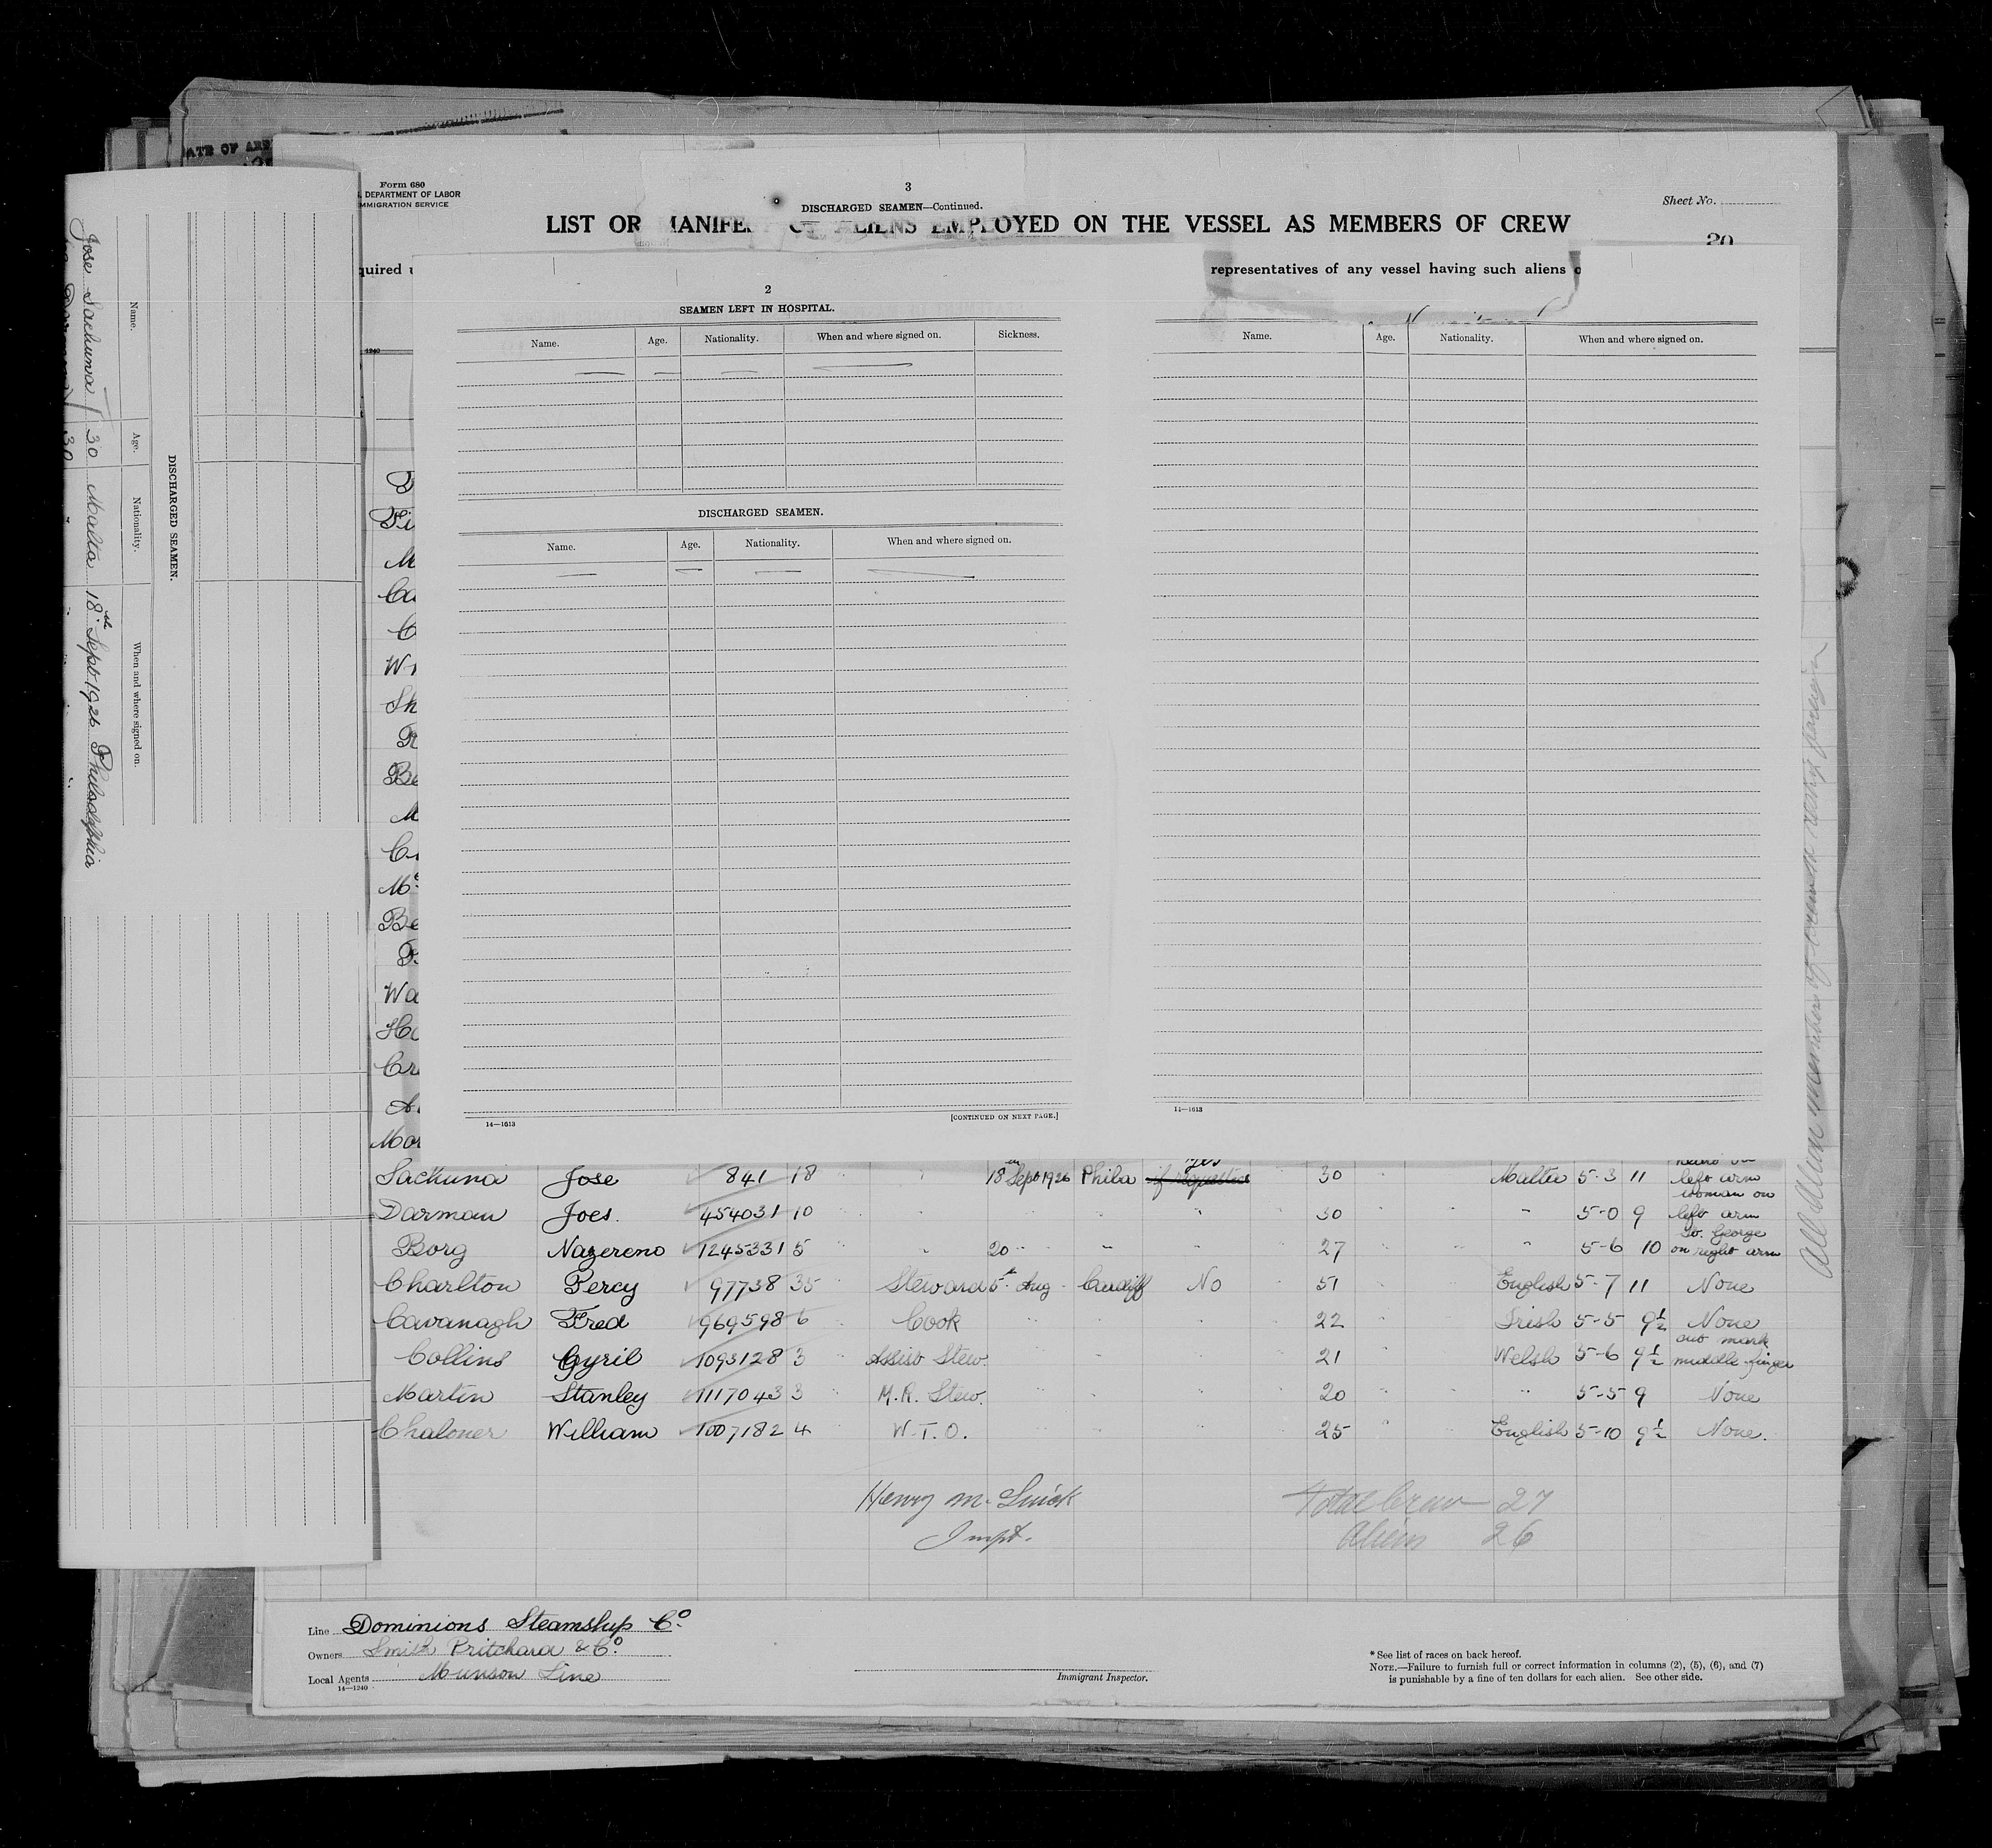 Form 680
DEPARTMENT OF LABOR
IMMIGRATION SERVICE
3
DISCHARGED SEAMEN—Continued.
Sheet No.
LIST OR MANIFEST OF ALIENS EMPLOYED ON THE VESSEL AS MEMBERS OF CREW
20
representatives of any vessel having such aliens
2
SEAMEN LEFT IN HOSPITAL.
Name. Age. Nationality. When and where signed on. Sickness.
Name. Age. Nationality. When and where signed on.
DISCHARGED SEAMEN.
Name. Age. Nationality. When and where signed on.
[CONTINUED ON NEXT PAGE.]
14—1613
11—1613
DISCHARGED SEAMEN.
Name. Age. Nationality. When and where signed on.
Jose Sackuna 30 Malta 18th Sept. 1926 Philadelphia
30
Fi
M
Ca
C
Wi
Sh
R
Be
M
Cr
Mc
Be
Wa
Ha
Cr
A
Mor
Sackuna Jose 841 18 " " 18 Sept 1926 Phila yes 30 " Malta 5-3 11 left arm
woman on
Darman Joes. 454031 10 " " " " " 30 " " 5-0 9 left arm
St. George
Borg Nazereno 1245331 5 " " 20 " " " 27 " " 5-6 10 on right arm
Charlton Percy 97738 35 " Steward 5th Aug Cardiff No 51 " English 5-7 11 None
Cavanagh Fred 969598 6 " Cook " " " 22 " Irish 5-5 9½ None
cut mark
Collins Cyril 1093128 3 Assist Stew. " " " 21 " Welsh 5-6 9½ middle finger
Martin Stanley 1117043 3 M.R. Stew. " " " 20 " " 5-5 9 None
Chaloner William 1007182 4 W.T.O. " " " 25 " English 5-10 9½ None.
Henry M.
Inspt.
Total Crew 27
Aliens 26
Line Dominions Steamship Co.
Owners Smith Pritchard & Co.
Local Agents Munson Line
14—1240
Immigrant Inspector.
* See list of races on back hereof.
NOTE.—Failure to furnish full or correct information in columns (2), (5), (6), and (7)
is punishable by a fine of ten dollars for each alien. See other side.
All Alien members of crew